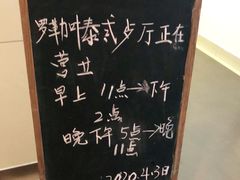 罗勒叶泰式步厅正在
营业
早上 11点→下午
2点
晚下午5点→晚
11点
2020.4.3日